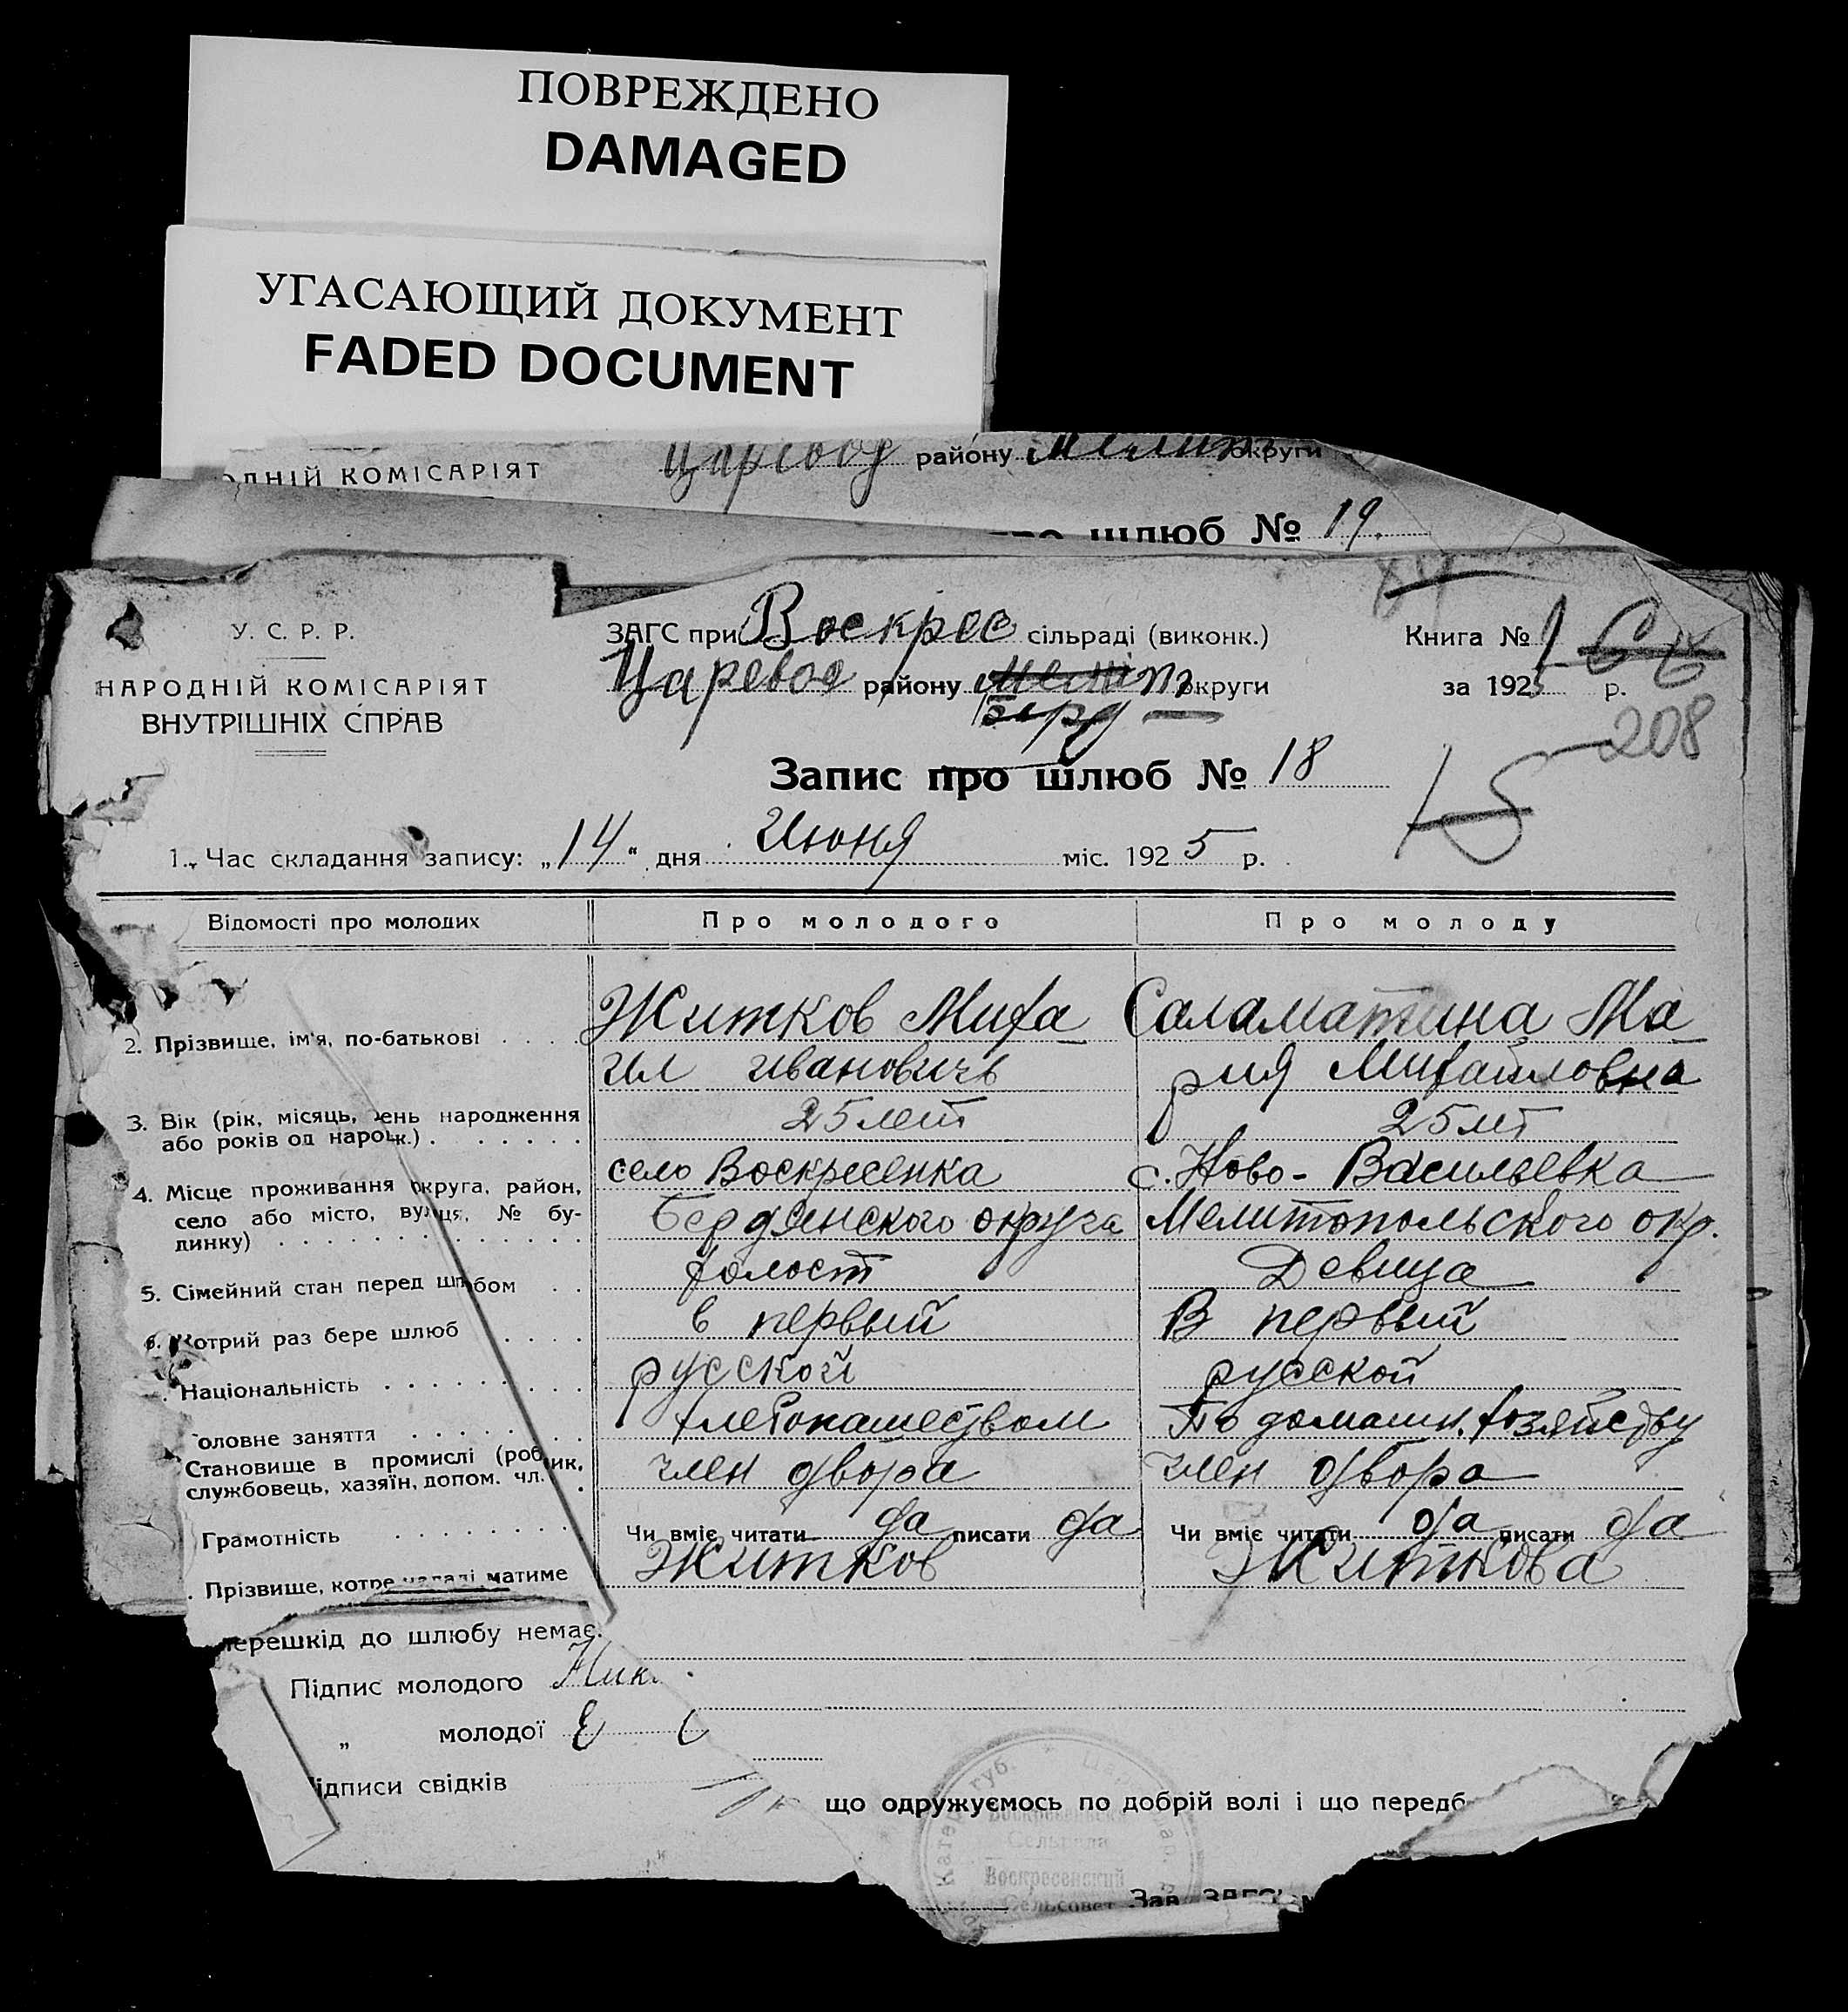 ПОВРЕЖДЕНО
DAMAGED
УГАСАЮЩИЙ ДОКУМЕНТ
FADED DOCUMENT
Царевод району Мелит округи
ОДНІЙ КОМІСАРІЯТ
шлюб № 19.
У. С. Р. Р.
НАРОДНІЙ КОМІСАРІЯТ
ВНУТРІШНІХ СПРАВ
ЗАГС при Воскрес сільраді (виконк.)
Царевод району Меліт округи
Берд
Книга № 1
за 1925 р.
208
15
Запис про шлюб № 18
1. Час складання запису: „14" дня Июня міс. 1925 р.
Відомості про молодих Про молодого Про молоду
2. Прізвище, ім'я, по-батькові Житков Миха Саламатина Ма
ил Ивановичь рия Михайловна
3. Вік (рік, місяць, день народження 25 лет 25 лт
або років од народж.)
4. Місце проживання округа, район, село Воскресенка с. Ново-Васильевка
село або місто, вулиця, № бу- Бердянского округа Мелитопольского окр.
динку)
5. Сімейний стан перед шлюбом холост Девица
6. Котрий раз бере шлюб в первый В первый
Національність русской русской
Головне заняття хлебопашеством По домашн. хозяйству
Становище в промислі (робітник, член двора член двора
службовець, хазяїн, допом. чл.
Грамотність Чи вміє читати да писати да Чи вміє читати да писати да
Прізвище, котре надалі матиме Житков Житкова
перешкід до шлюбу немає.
Підпис молодого
„ молодої
підписи свідків
що одружуємось по добрій волі і що передб
Катер губ.
Сельрада
Воскресенский
Сельсовет
Зав. ЗАГС'ом